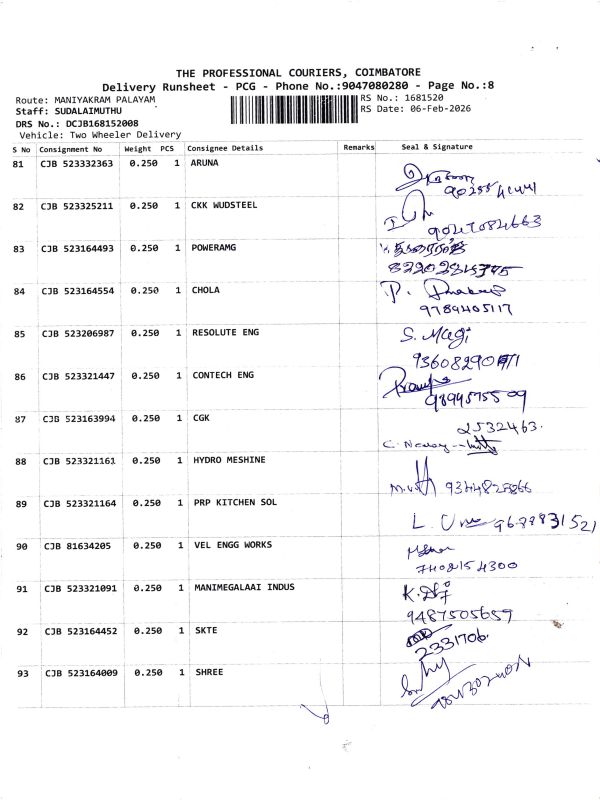 THE PROFESSIONAL COURIERS, COIMBATORE
Delivery Runsheet - PCG - Phone No.:9047080280 - Page No.:8
Route: MANIYAKRAM PALAYAM
RS No.: 1681520
Staff: SUDALAIMUTHU
RS Date: 06-Feb-2026
DRS No.: DCJB168152008
Vehicle: Two Wheeler Delivery
S No Consignment No Weight PCS Consignee Details Remarks Seal & Signature
81 CJB 523332363 0.250 1 ARUNA
82 CJB 523325211 0.250 1 CKK WUDSTEEL
9047084663
83 CJB 523164493 0.250 1 POWERAMG
84 CJB 523164554 0.250 1 CHOLA
P.
9789405117
85 CJB 523206987 0.250 1 RESOLUTE ENG
S. Magi
86 CJB 523321447 0.250 1 CONTECH ENG
87 CJB 523163994 0.250 1 CGK
2532463.
88 CJB 523321161 0.250 1 HYDRO MESHINE
89 CJB 523321164 0.250 1 PRP KITCHEN SOL
L.
90 CJB 81634205 0.250 1 VEL ENGG WORKS
91 CJB 523321091 0.250 1 MANIMEGALAAI INDUS
9487505659
92 CJB 523164452 0.250 1 SKTE
2331706.
93 CJB 523164009 0.250 1 SHREE